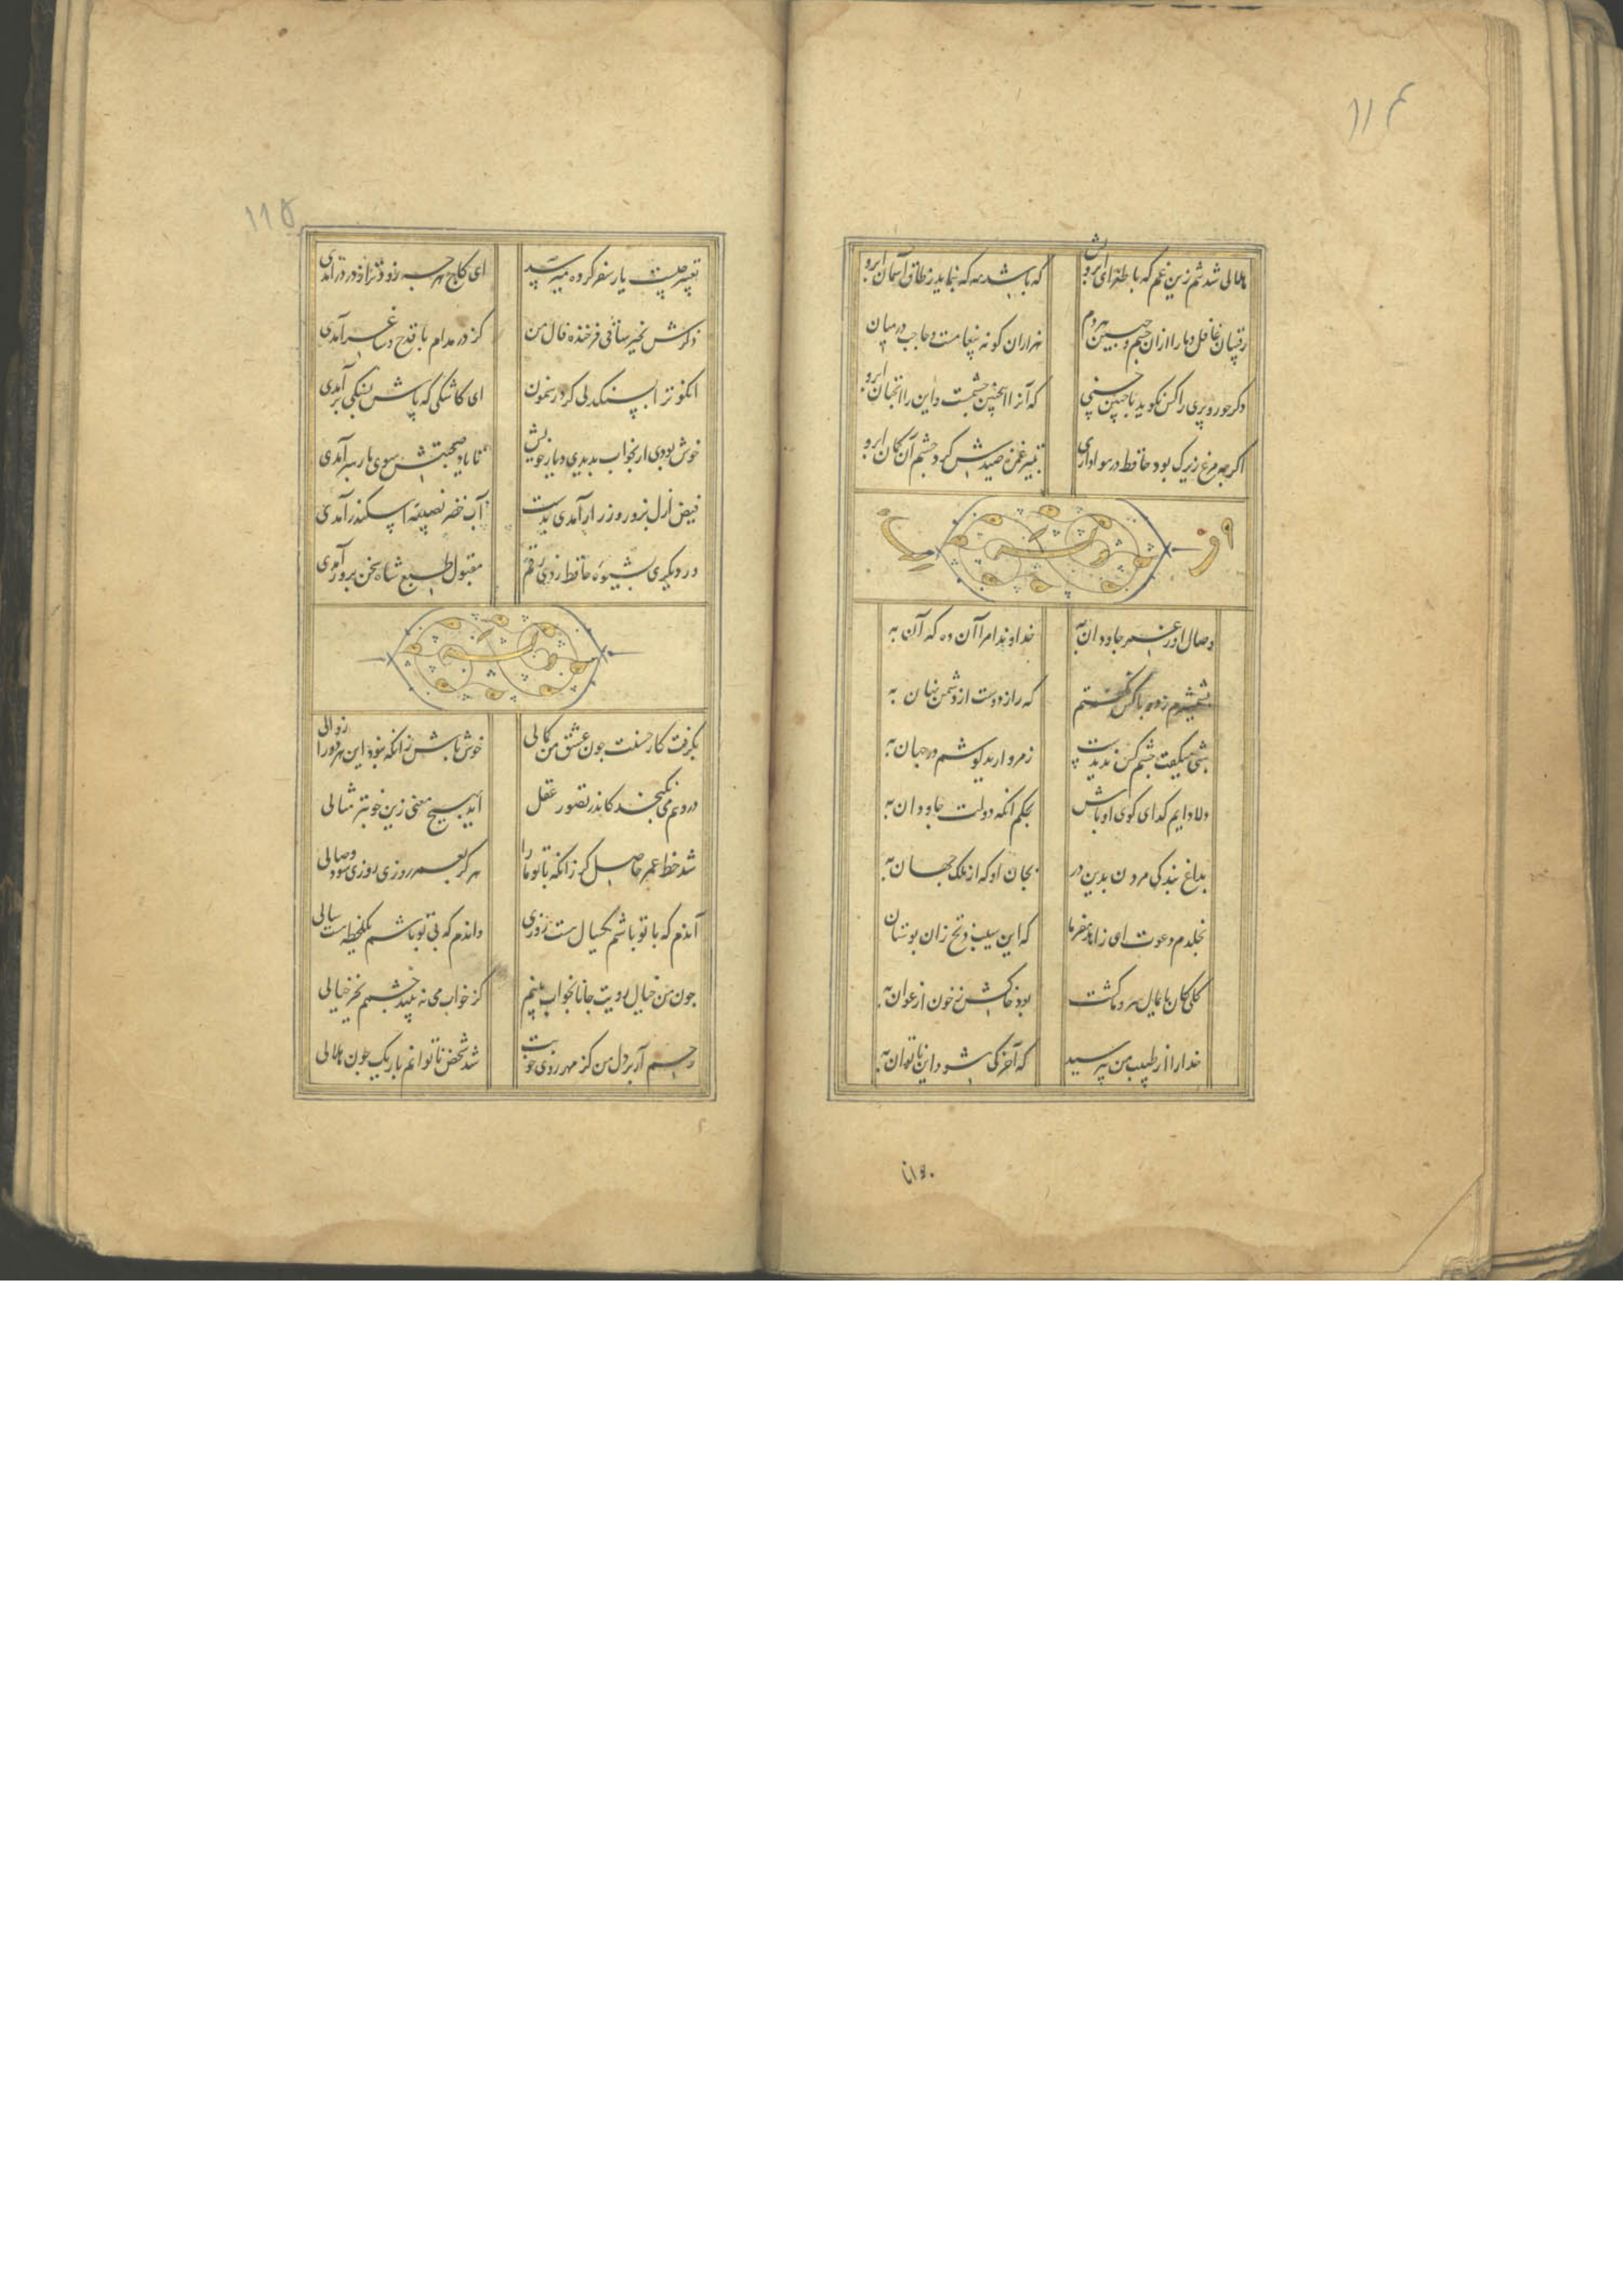 ۱۱۴
هلالی شد تنم زین غم که با طغرای ابرویش که باشد مه که بنماید ز طاق آسمان ابرو
رقیبان غافل و ما را ازان چشم و جبین هر دم هزاران گونه پیغامست و حاجب در میان ابرو
دکر حور و پری را کس نکوید با چنین حسنی که آنرا اینچنین چشمست و این را انچنان ابرو
اکر چه مرغ زیرک بود حافظ در هواداری بتیر غمزه صیدش کرد چشم آن کمان ابرو
وصال او ز عمر جاودان به خداوندا مرا آن ده که آن به
بشمشیرم زد و با کس نکفتم که راز دوست از دشمن نهان به
شبی میکفت چشم کس ندیدست ز مروارید کوشم در جهان به
دلا دایم کدای کوی او باش بحکم انکه دولت جاودان به
بداغ بندکی مردن بدین در بجان او که از ملک جهان به
بخلدم دعوت ای زاهد مفرما که این سیب زنخ زان بوستان
کلی کان پایمال سرو ما کشت بود خاکش ز خون ارغوان به
خدا را از طبیب من بپرسید که آخر کی شود این ناتوان به
۱۱۵
تعبیر چیست یار سفر کرده میرسید ای کاج هر چه زودتر از در درآمدی
ذکرش بخیر ساقی فرخنده فال من کز در مدام با قدح و ساغر آمدی
انکو ترا بسنکدلی کرد رهنمون ای کاشکی که پاش بسنکی برآمدی
خوش بودی ار بخواب بدیدی دیار خویش تا یاد صحبتش سوی ما رهبر آمدی
فیض ازل بزور و زر ار آمدی بدست آب خضر نصیبه اسکندر آمدی
ور دیکری بشیوه حافظ زدی رقم مقبول طبع شاه سخن پرور آمدی
بکرفت کار حسنت چون عشق من کمالی خوش باش زانکه نبود این هر دو را زوالی
در وهم می نکنجد کاندر تصور عقل آید بهیچ معنی زین خوبتر مثالی
شد حظ عمر حاصل کر زانکه با تو ما را هرکز بعمر روزی روزی شود وصالی
آندم که با تو باشم یکسال هست روزی واندم که بی تو باشم یکلحظه است سالی
چون من خیال رویت جانا بخواب بینم کز خواب می نه بیند چشمم بجز خیالی
رحم آر بر دل من کز مهر روی خوبت شد شخص ناتوانم باریک چون هلالی